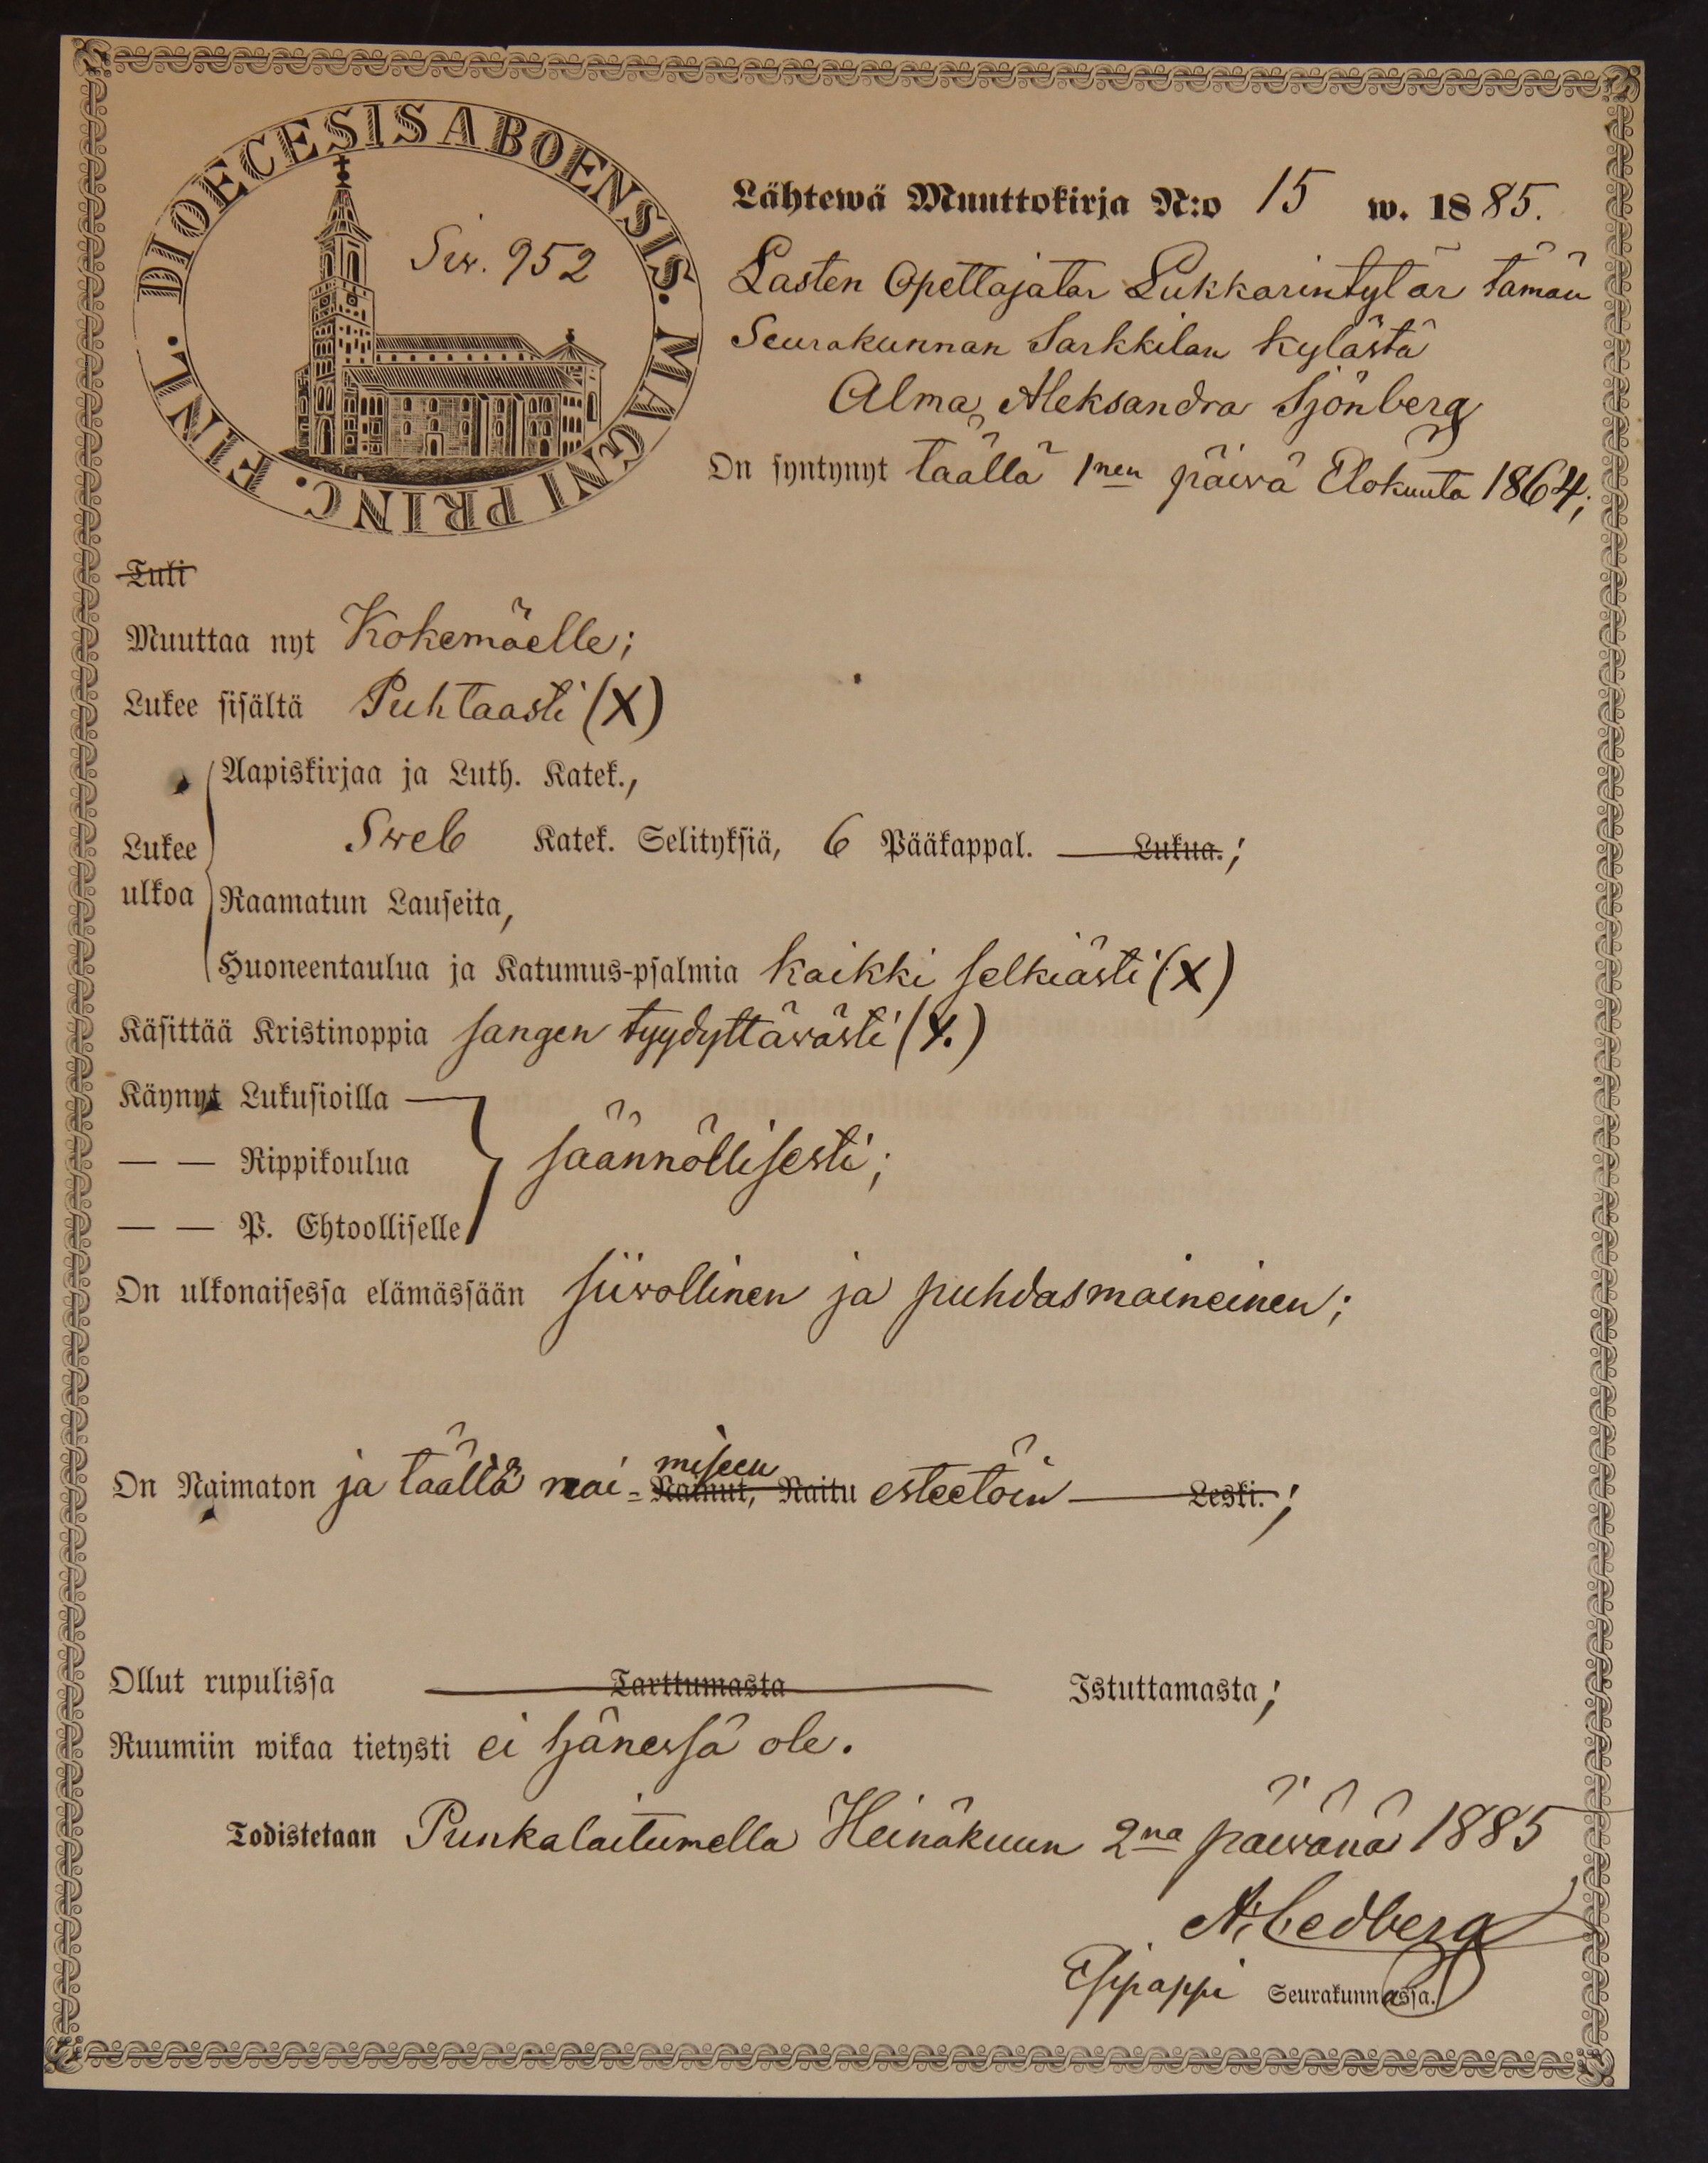 DIOECESIS ABOENSIS. MAGNI PRINC. FINL.
Siv. 952
Lähtewä Muuttokirja N:o 15 w. 1885.
Lasten Opettajatar Lukkarintytär tämän
Seurakunnan Sarkkilan kylästä
Alma Aleksandra Sjönberg
On syntynyt täällä 1nen päivä Elokuuta 1864;
Tuli
Muuttaa nyt Kokemäelle;
Lukee sisältä Puhtaasti (X)
Aapiskirjaa ja Luth. Katek.,
Lukee ulkoa
Sweb Katek. Selityksiä, 6 Pääkappal. Lukua.;
Raamatun Lauseita,
Huoneentaulua ja Katumus-psalmia kaikki selkiästi (X)
Käsittää Kristinoppia sangen tyydyttävästi (X.)
Käynyt Lukusioilla
— — Rippikoulua säännöllisesti;
— — P. Ehtoolliselle
On ulkonaisessa elämässään siivollinen ja puhdasmaineinen;
On Naimaton ja täällä nai- miseen Nainut, Naitu esteetöin Leski.;
Ollut rupulissa Tarttumasta Istuttamasta;
Ruumiin wikaa tietysti ei hänessä ole.
Todistetaan Punkalaitumella Heinäkuun 2na päivänä 1885
A. Cedberg
Esipappi Seurakunnassa.